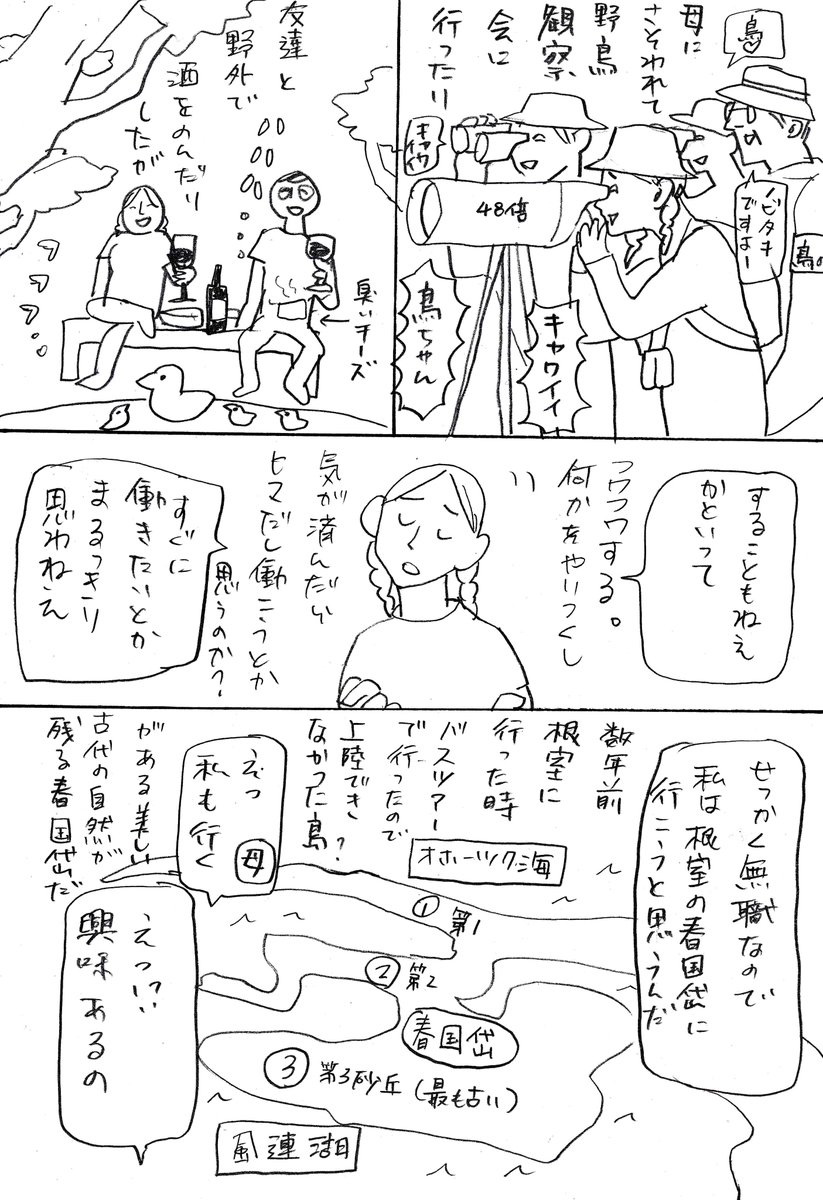 母に
さそわれて
野鳥
観察
会に
行ったり
鳥
ノビタキ
ですよー
鳥の
キャワ
イイ
48倍
キャワイイ
鳥ちゃん
友達と
野外で
酒をのんだり
したが
臭いチーズ
することもねえ
かといって
フワフワする。
何かをやりつくし
気が済んだい
ヒマだし働こうとか
思うのか?
すぐに
働きたいとか
まるっきり
思わねえ
せっかく無職なので
私は根室の春国岱に
行こうと思うんだ
数年前
根室に
行った時
バスツアー
で行ったので
上陸でき
なかった島?
がある美しい
古代の自然が
残る春国岱だ
えっ
私も行く
母
えっ!?
興味あるの
オホーツク海
① 第1
② 第2
春国岱
③ 第3砂丘(最も古い)
風連湖